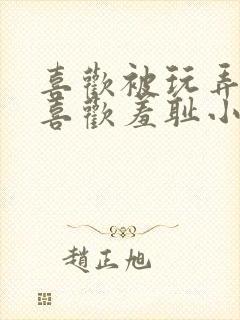 喜歡被玩弄
喜歡羞耻小
趙正旭